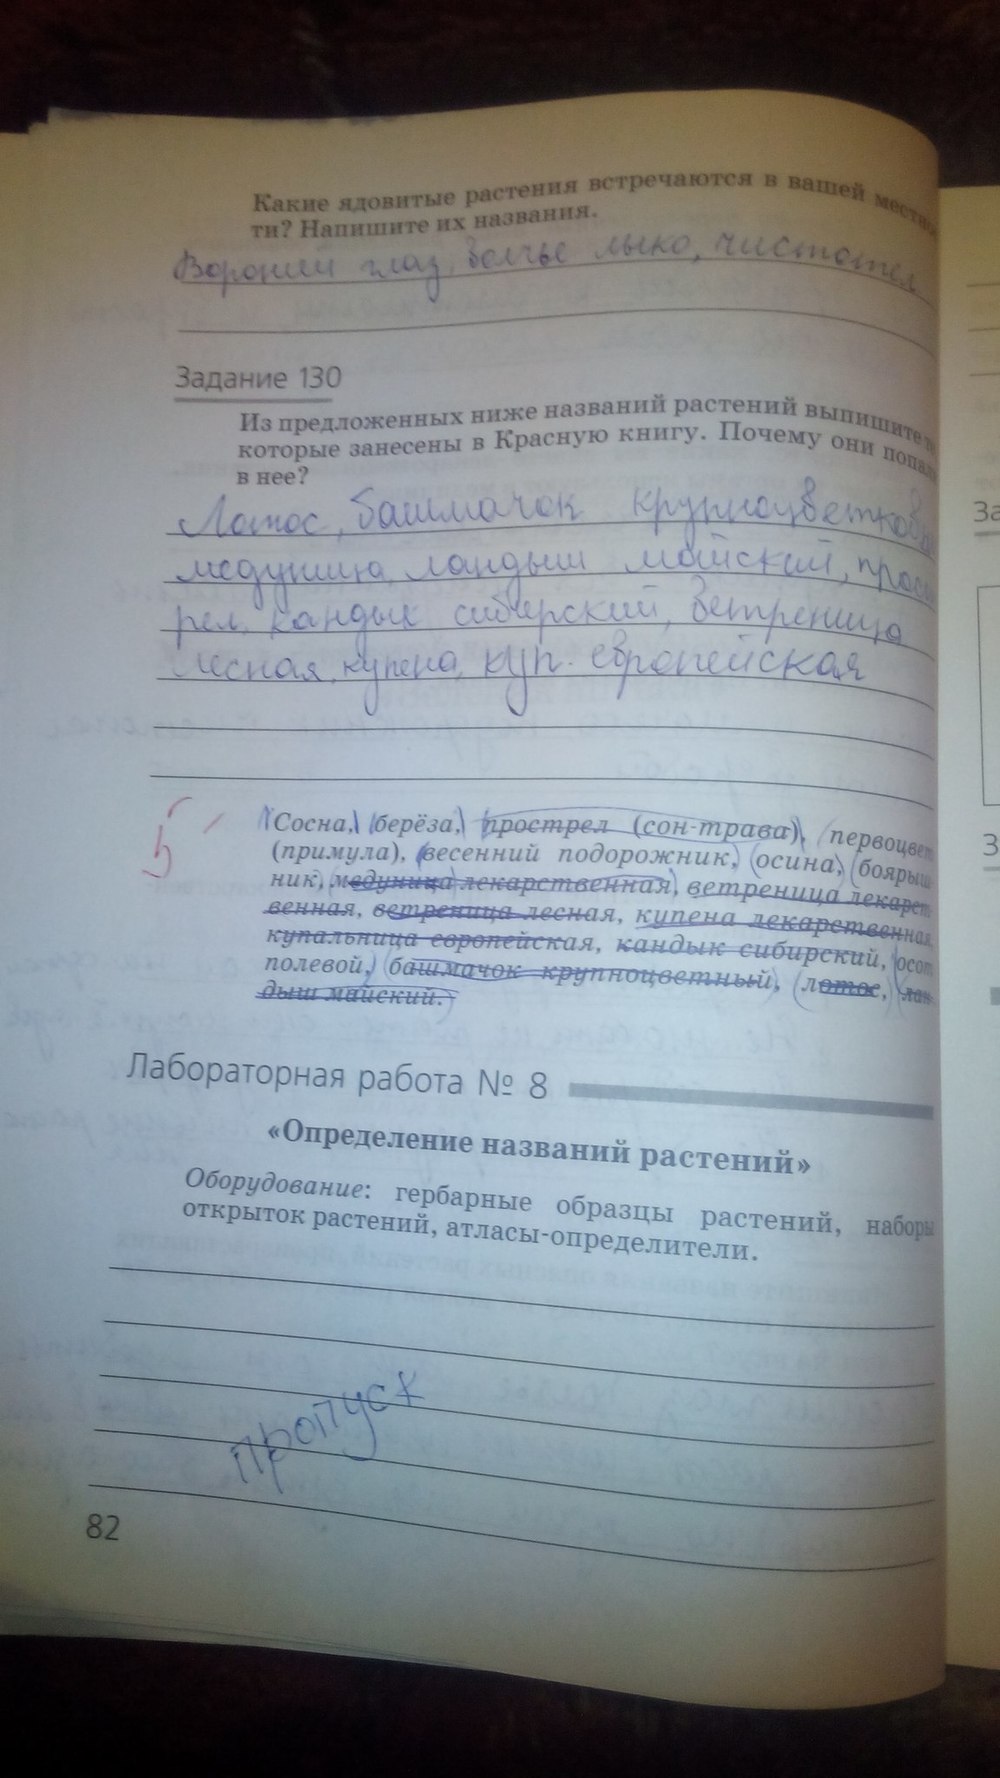 Какие ядовитые растения встречаются в вашей местнос
ти? Напишите их названия.
Вороний глаз, волчье лыко, чистотел
Задание 130
Из предложенных ниже названий растений выпишите те,
которые занесены в Красную книгу. Почему они попали
в нее?
Лотос, башмачок крупноцветковый
медуница, ландыш майский, прост
рел, кандык сибирский, ветреница
лесная, купена, куп. европейская
5
Сосна, берёза, прострел (сон-трава), первоцвет
(примула), весенний подорожник, осина, боярыш
ник, медуница лекарственная, ветреница лекарст
венная, ветреница лесная, купена лекарственная,
купальница европейская, кандык сибирский, осот
полевой, башмачок крупноцветный, лотос, лан
дыш майский.
Лабораторная работа № 8
«Определение названий растений»
Оборудование: гербарные образцы растений, наборы
открыток растений, атласы-определители.
Пропуск
82
За
З